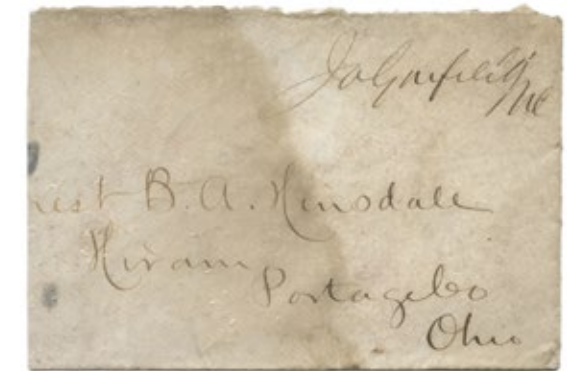 JAGarfield
MC
rest B. A. Hinsdale
Hiram
Portage Co
Ohio